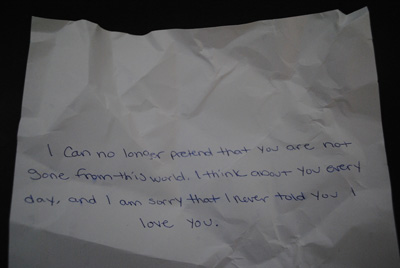 I can no longer pretend that you are not
gone from this world. I think about you every
day, and I am sorry that I never told you I
love you.